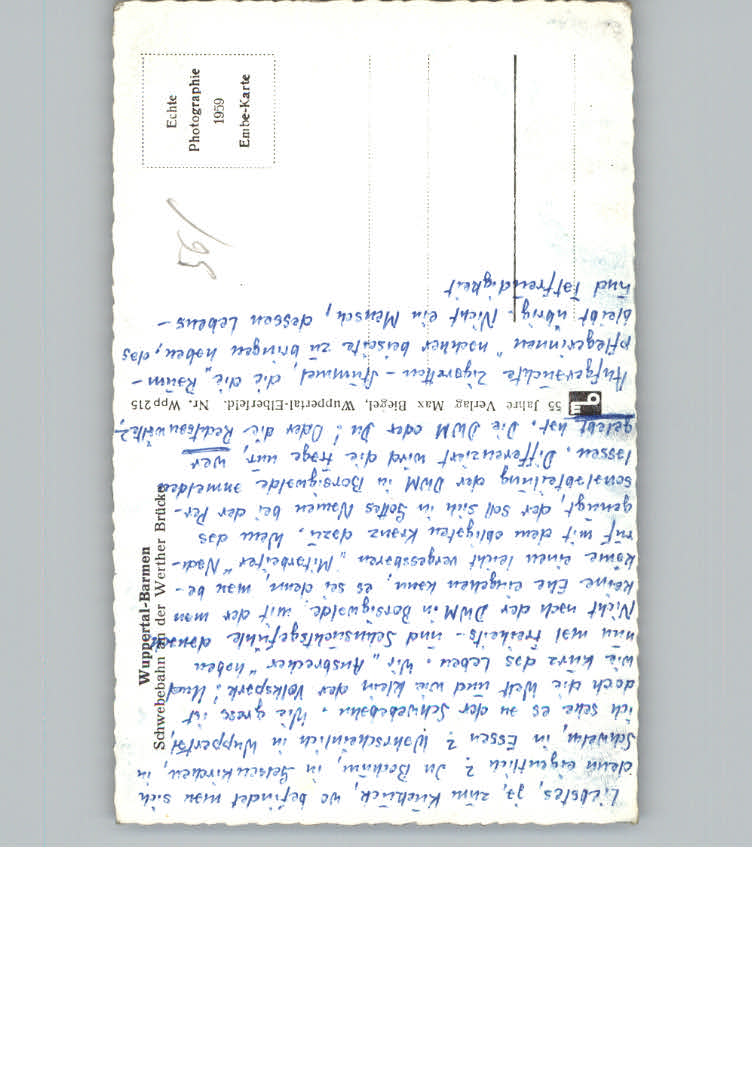 Liebstes, ja, zum Kuckuck, wo befindet man sich
denn eigentlich? In Bochum, in Gelsenkirchen, in
Schwelm, in Essen? Wahrscheinlich in Wuppertal,
ich sehe es an der Schwebebahn. Wie gross ist
doch die Welt und wie klein der Volkspark! Und
wie kurz das Leben. Wir „Ausbrecher" haben
nun mal Freiheits- und Sehnsuchtsgefühle danach
Nicht nach der DWM in Borsigwalde, mit der man
keine Ehe eingehen kann, es sei denn, man be-
käme einen leicht vergessbaren „Mitarbeiter" Nach-
ruf mit dem obligaten Kranz dazu. Wem das
genügt, der soll sich in Gottes Namen bei der Per-
sonalabteilung der DWM in Borsigwalde anmelden
lassen. Differenziert wird die Frage nur, wer
gelebt hat. Die DWM oder Du! Oder die Rechtsanwälte?
Aufgerauchte Zigaretten-Stummel, die die „Raum-
pflegerinnen" nachher beiseite zu bringen haben, das
bleibt übrig. Nicht ein Mensch, dessen Lebens-
und Tatfreudigkeit
Wuppertal-Barmen
Schwebebahn an der Werther Brücke
55 Jahre Verlag Max Biegel, Wuppertal-Elberfeld. Nr. Wpp 215
Echte
Photographie
1959
Embe-Karte